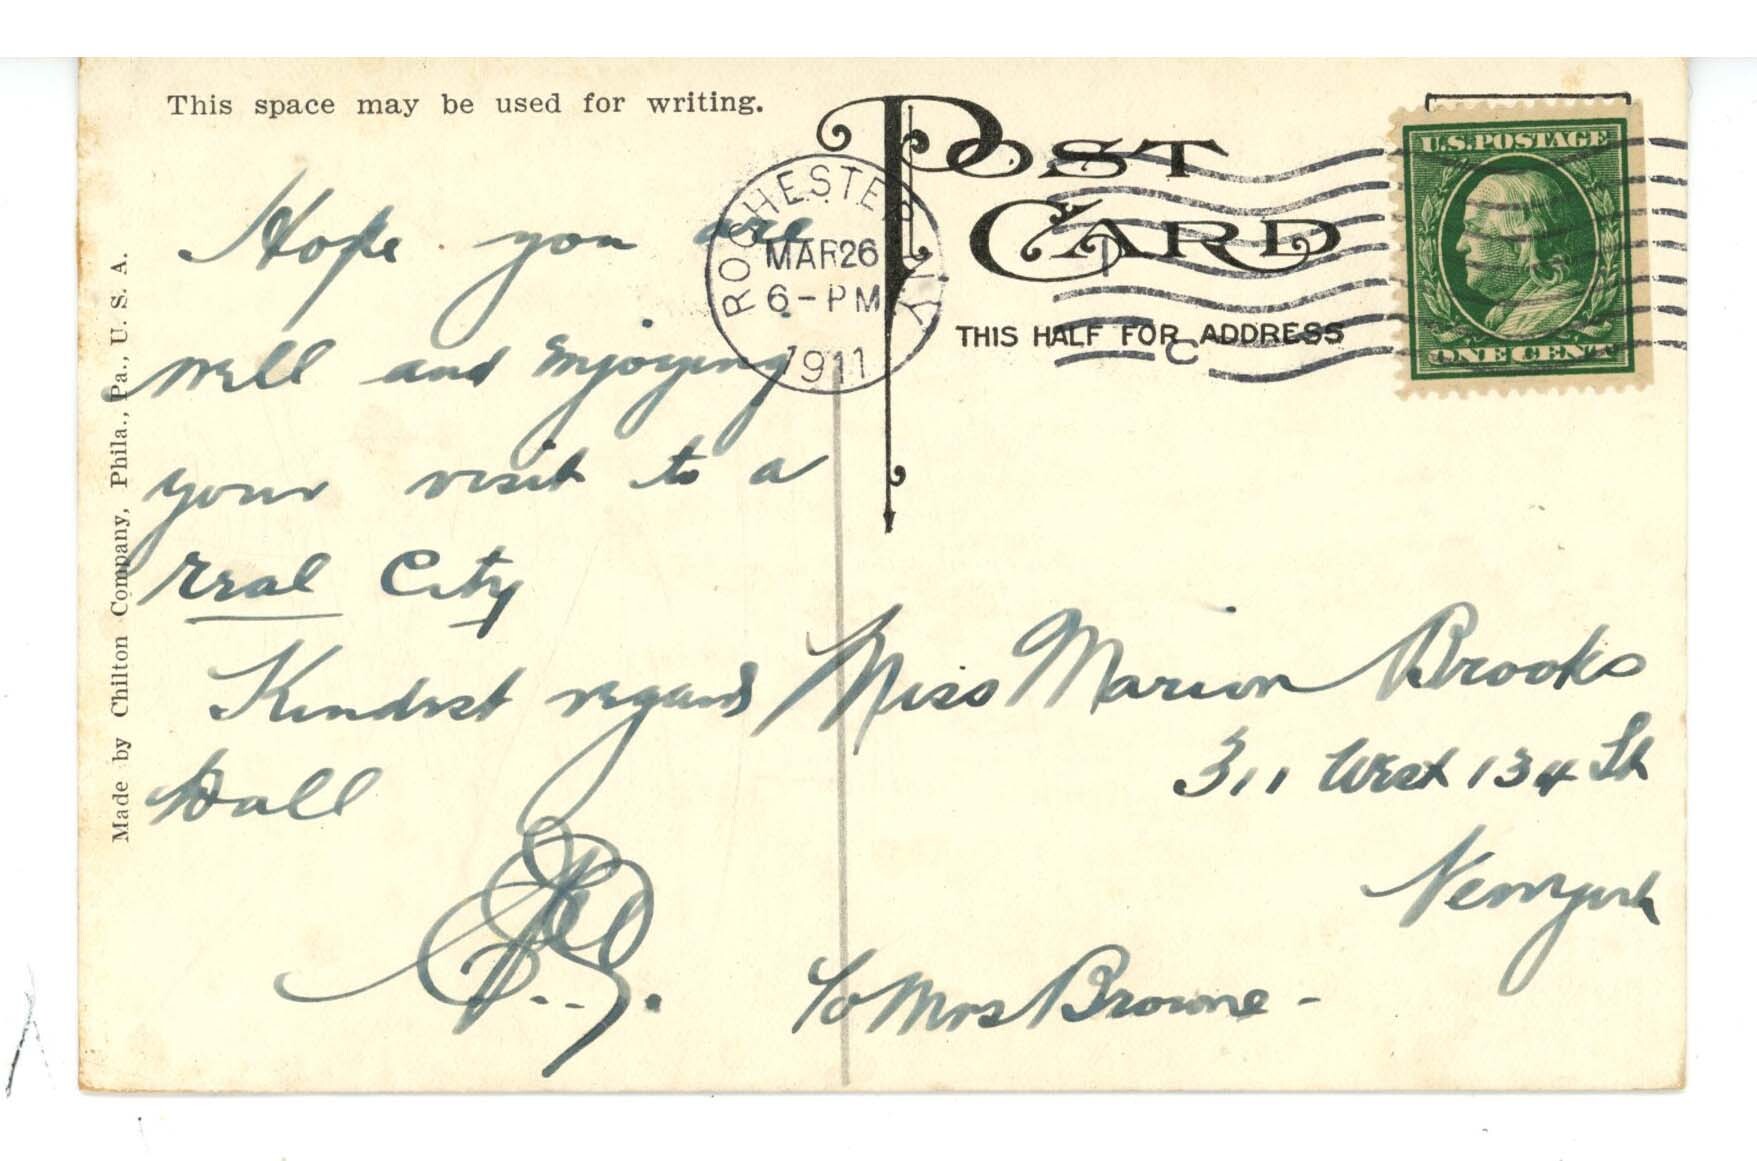 This space may be used for writing.
POST CARD
THIS HALF FOR ADDRESS
ROCHESTER N.Y.
MAR 26
6-PM
1911
C
U.S. POSTAGE
ONE CENT
Hope you are
well and enjoying
your visit to a
real City
Kindest regards
Miss Marion Brooks
311 West 134 St
New York
c/o Mrs Browne -
Made by Chilton Company, Phila., Pa., U. S. A.